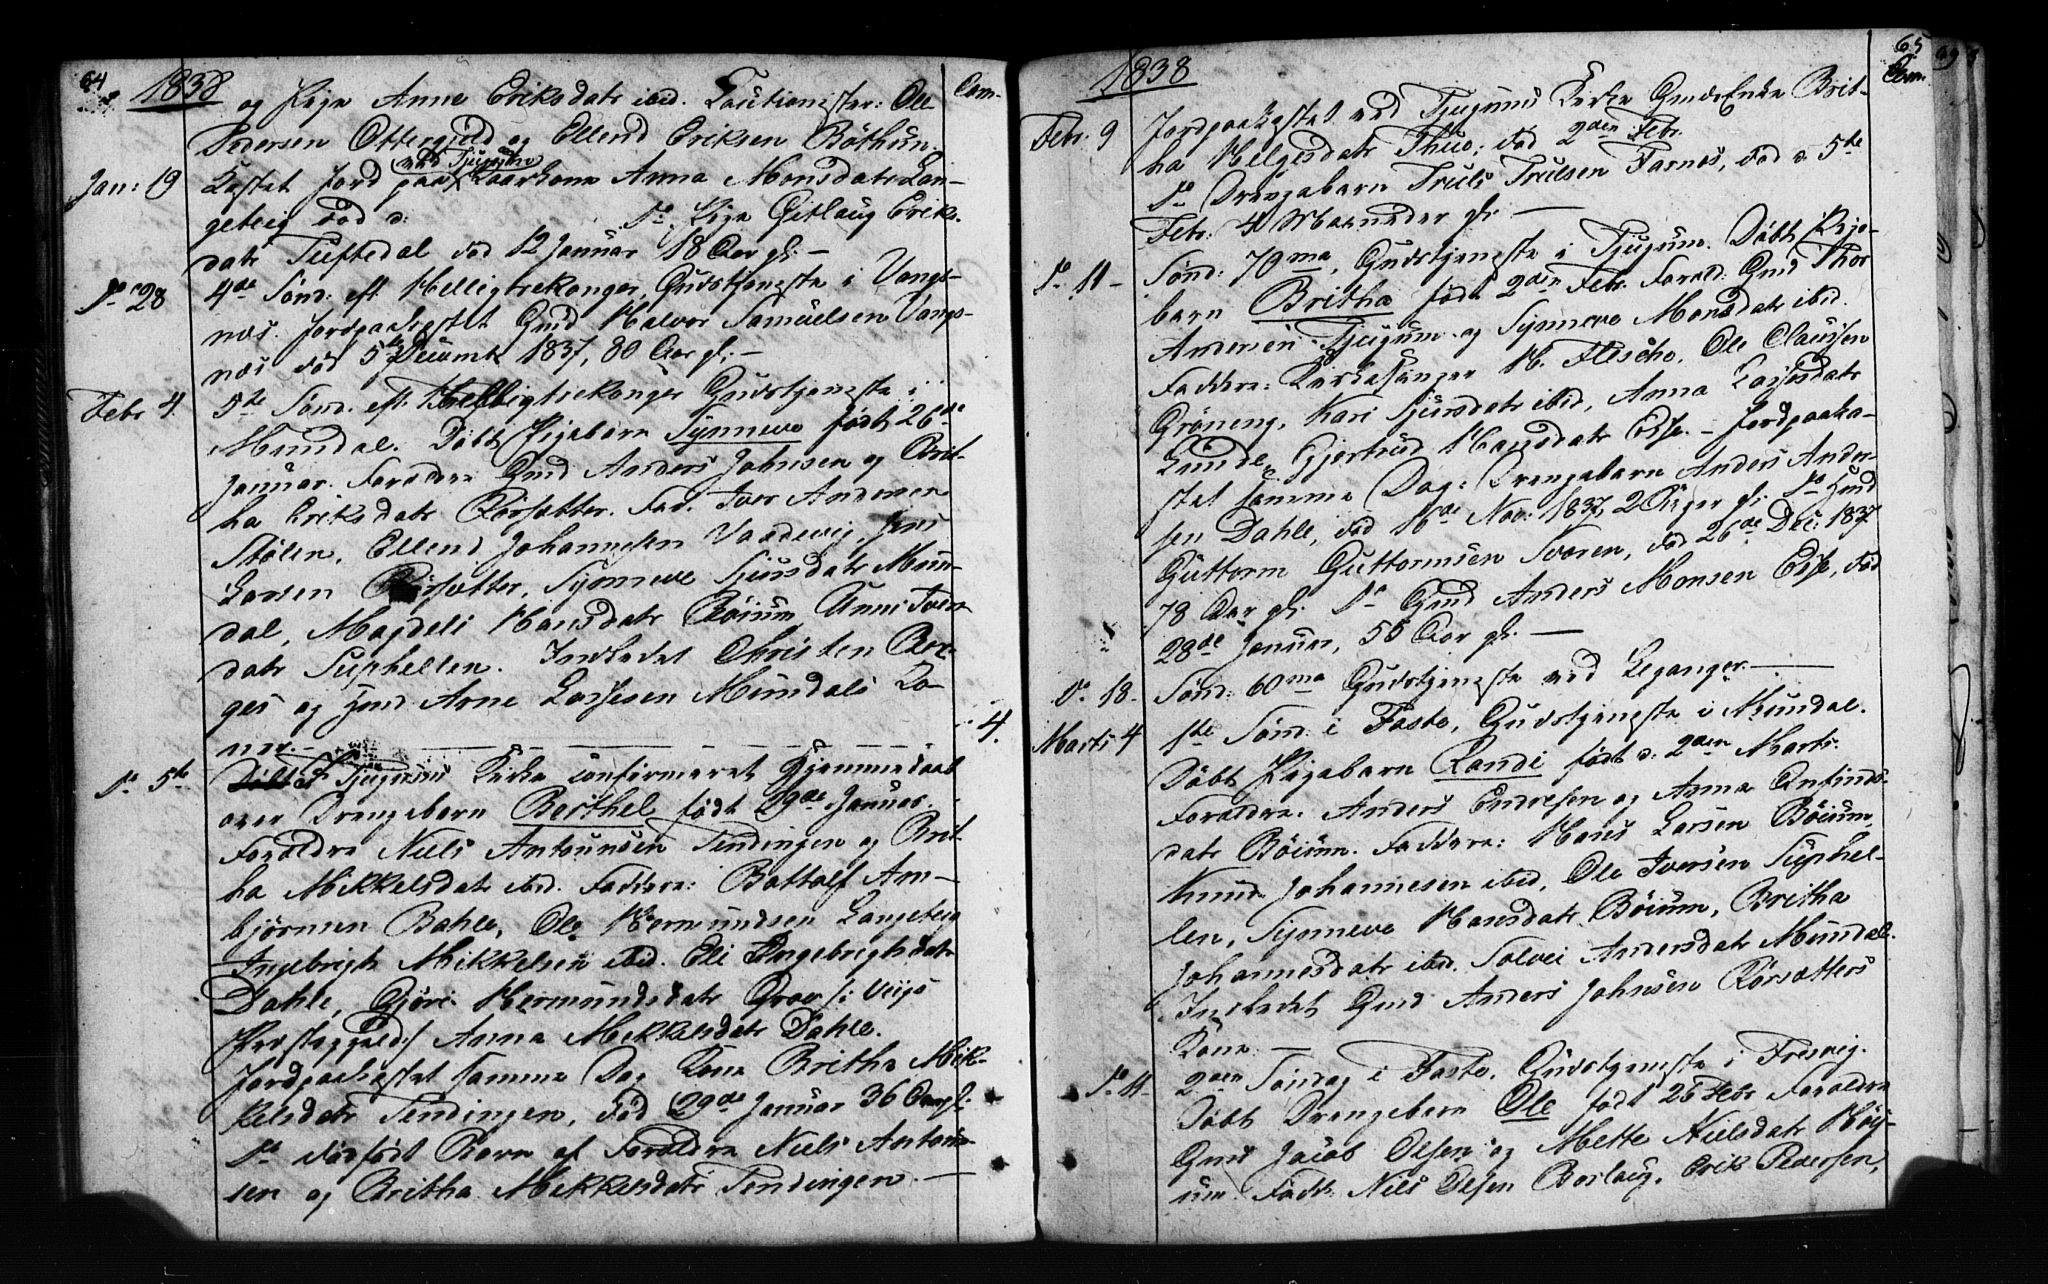 64
1838
Com.
og Pige Anne Eriksdatr ibid. Cautionister: Ole
Pedersen Ottergield og Ellend Eriksen Böthun.
Jan: 19
Kastet Jord paa ved Tjugum Kaarkone Anna Monsdatr Lan-
geteig död d: do Pige Gitlaug Eriks-
datr Tuftedal död 12 Januar 18 Aar gl. –
do 28
4de Sönd. eft. Helligtrekonger, Gudstjeneste i Vangs-
nes. Jordpaakastet Gmd Halvor Samuelsen Vangs-
nes död 5te Decembr 1837, 80 Aar gl. –
Febr 4.
5te Sönd. eft. Helligtrekonger Gudstjeneste i
Mundal. Döbt Pigebarn Synneve födt 26de
Januar. Forældre Gmd Anders Johnsen og Brit-
ha Eriksdatr Rörsætter. Fad. Iver Andersen
Stölen, Ellend Johannesen Vaadevig, Jens
Larsen Rörsætter, Synneve Sjursdatr Mun-
dal, Magdeli Hansdatr Böium, Anni Iver-
datr Suphellen. Indledet Christen Bor-
ges og Gmd Arne Lassesen Mundals Ko-
ner. –
4.
do 5te
I Tjugums Kirke confirmeret Hjemmedaab
over Drengebarn Berthel, födt 29de Januar.
Forældre Niels Antounsen Tendingen og Brit-
ha Mikkelsdatr ibid. Faddere: Bottolf Arn-
björnsen Dahle, Ole Hermundsen Langeteig
Ingebrigt Mikkelsen ibid. Eli Engebrigtsdatr
Dahle, Gjöri Hermundsdatr Grov /: Viigs
Præstegjeld:/ Anna Mikkelsdatr Dahle.
Jordpaakastet samme Dag Kone Britha Mik-
kelsdatr Tendingen, död 29de Januar 36 Aar gl.
do dödfödt Barn af Forældre Niels Antoun-
sen og Britha Mikkelsdatr Tendingen. –
65
1838
Com.
Febr. 9
Jordpaakastet ved Tjugums Kirke Gmds Enke Brit-
ha Helgesdatr Thue, död 2den Febr.
do Drengebarn Truls Trulsen Farnes, död d: 5te
Febr. 4 Maaneder gl. –
do 11 –
Sönd: 70ma, Gudstjeneste i Tjugum. Döbt Pige-
barn Britha födt 2den Febr. Foræld: Gmd Thor
Andersen Tjugum og Synneve Monsdatr ibid.
Faddere: Kirkesanger H. Flesche, Ole Claussen
Gröneng, Kari Sjursdatr ibid, Anna Lassesdatr
Lunde, Gjertrud Hansdatr Esse. – Jordpaaka-
stet samme Dag: Drengebarn Anders Ander-
sen Dahle, död 16de Nov: 1837, 2 Uger gl. do Gmd
Guttorm Guttormsen Svoren, död 26de Dec: 1837
78 Aar gl. do Gmd Anders Monsen Esse, död
28de Januar, 55 Aar gl. –
do 18.
Sönd: 60ma Gudstjeneste ved Leganger –
Marts 4
1ste Sönd: i Faste, Gudstjeneste i Mundal.
Döbt Pigebarn Randi födt d: 2den Marts.
Forældre: Anders Endresen og Anna Anfinds-
datr Böium. Faddere: Hans Larsen Böium,
Knud Johannesen ibid, Ole Iversen Suphel-
len, Synneve Hansdatr Böium, Britha
Johannesdatr ibid. Solvei Andersdatr Mundal.
Indledet Gmd Anders Johnsen Rörsætters
Kone. –
do 11
2den Söndag i Faste, Gudstjeneste i Fresvig.
Döbt Drengebarn Ole födt 25 Febr Forældre
Gmd Jacob Olsen og Mette Nielsdatr Höy-
um. Fadd: Niels Olsen Borlaug, Erik Pedersen,